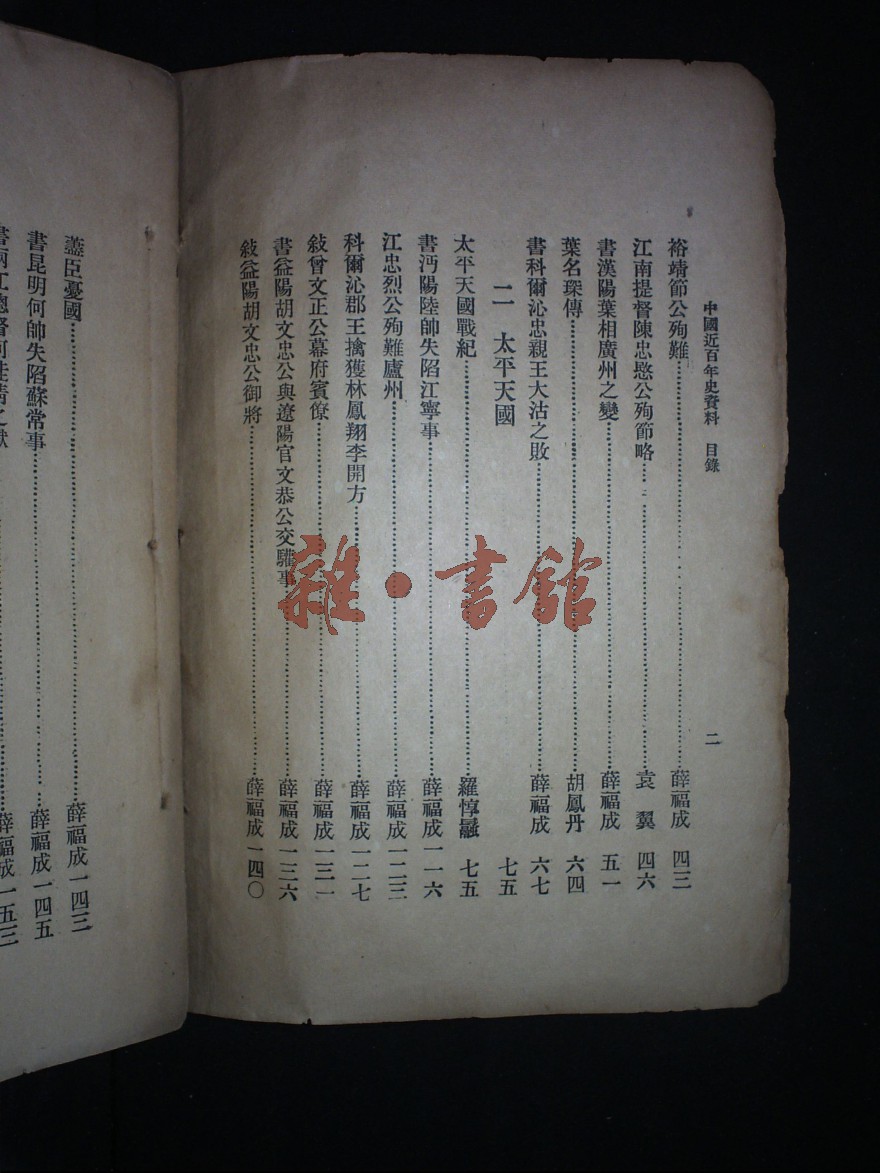 中國近百年史資料 目錄
二
裕靖節公殉難 薛福成 四三
江南提督陳忠愍公殉節略 袁翼 四六
書漢陽葉相廣州之變 薛福成 五一
葉名琛傳 胡鳳丹 六四
書科爾沁忠親王大沽之敗 薛福成 六七
二 太平天國 七五
太平天國戰紀 羅惇曧 七五
書沔陽陸帥失陷江寧事 薛福成 一一六
江忠烈公殉難廬州 薛福成 一二三
科爾沁郡王擒獲林鳳翔李開方 薛福成 一二七
敍曾文正公幕府賓僚 薛福成 一三一
書益陽胡文忠公與遼陽官文恭公交驩事 薛福成 一三六
敍益陽胡文忠公御將 薛福成 一四〇
藎臣憂國 薛福成 一四三
書昆明何帥失陷蘇常事 薛福成 一四五
書兩江總督何桂清之獄 薛福成 一五三
雜·書館